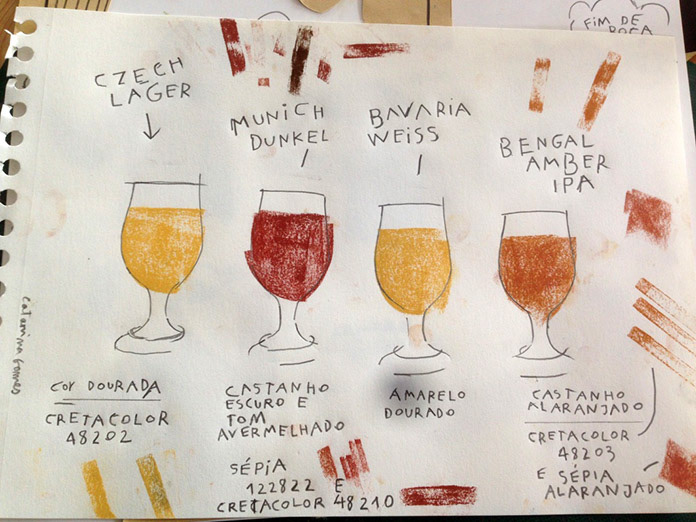 FIM DE
BOCA
CZECH
LAGER
MUNICH
DUNKEL
BAVARIA
WEISS
BENGAL
AMBER
IPA
catarina gomes
COR DOURADA
CRETACOLOR
48202
CASTANHO
ESCURO E
TOM
AVERMELHADO
SÉPIA
122822 E
CRETACOLOR 48210
AMARELO
DOURADO
CASTANHO
ALARANJADO
CRETACOLOR
48203
E SÉPIA
ALARANJADO